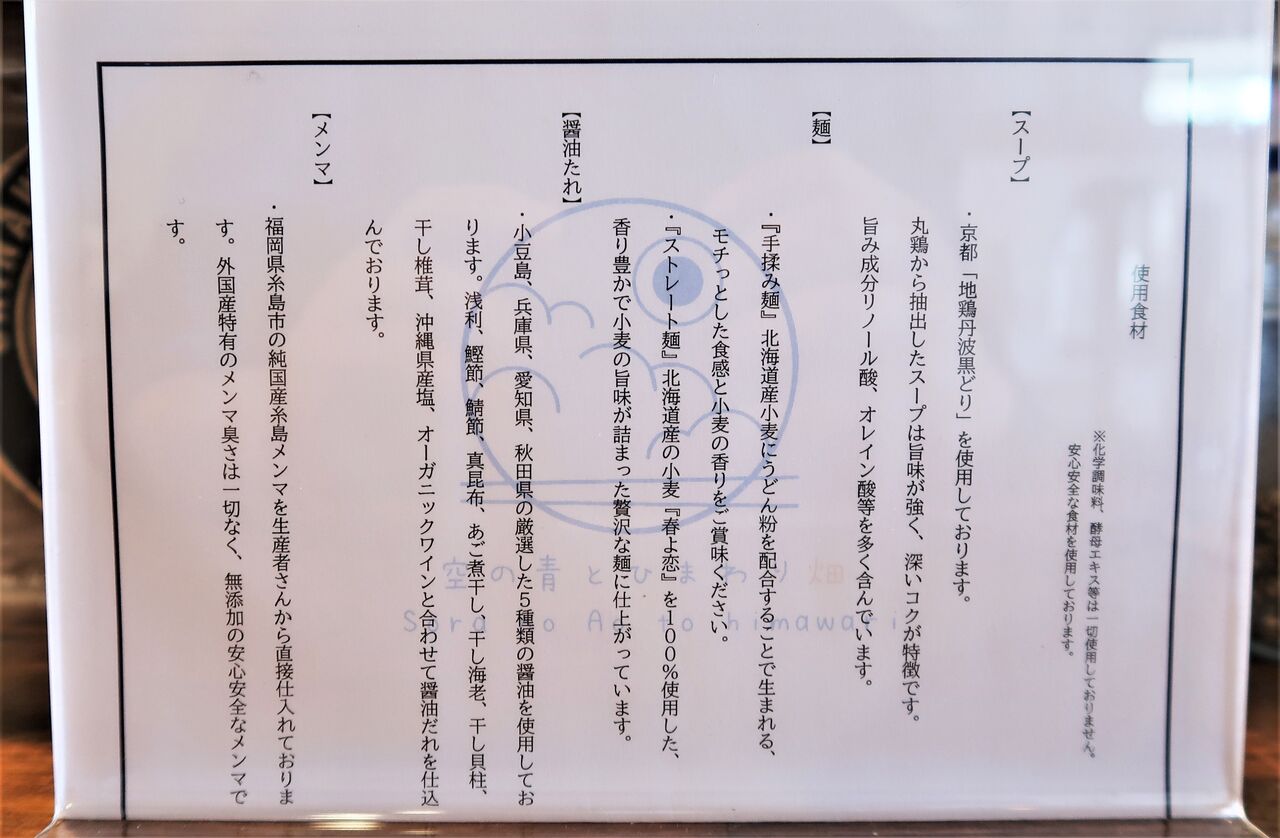 使用食材
※化学調味料、酵母エキス等は一切使用しておりません。
安心安全な食材を使用しております。
【スープ】
・京都「地鶏丹波黒どり」を使用しております。
丸鶏から抽出したスープは旨味が強く、深いコクが特徴です。
旨み成分リノール酸、オレイン酸等を多く含んでいます。
【麺】
・『手揉み麺』北海道産小麦にうどん粉を配合することで生まれる、
モチっとした食感と小麦の香りをご賞味ください。
・『ストレート麺』北海道産の小麦『春よ恋』を100％使用した、
香り豊かで小麦の旨味が詰まった贅沢な麺に仕上がっています。
【醤油たれ】
・小豆島、兵庫県、愛知県、秋田県の厳選した5種類の醤油を使用してお
ります。浅利、鰹節、鯖節、真昆布、あご煮干し、干し海老、干し貝柱、
干し椎茸、沖縄県産塩、オーガニックワインと合わせて醤油だれを仕込
んでおります。
【メンマ】
・福岡県糸島市の純国産糸島メンマを生産者さんから直接仕入れておりま
す。外国産特有のメンマ臭さは一切なく、無添加の安心安全なメンマで
す。
空の青とひまわり畑